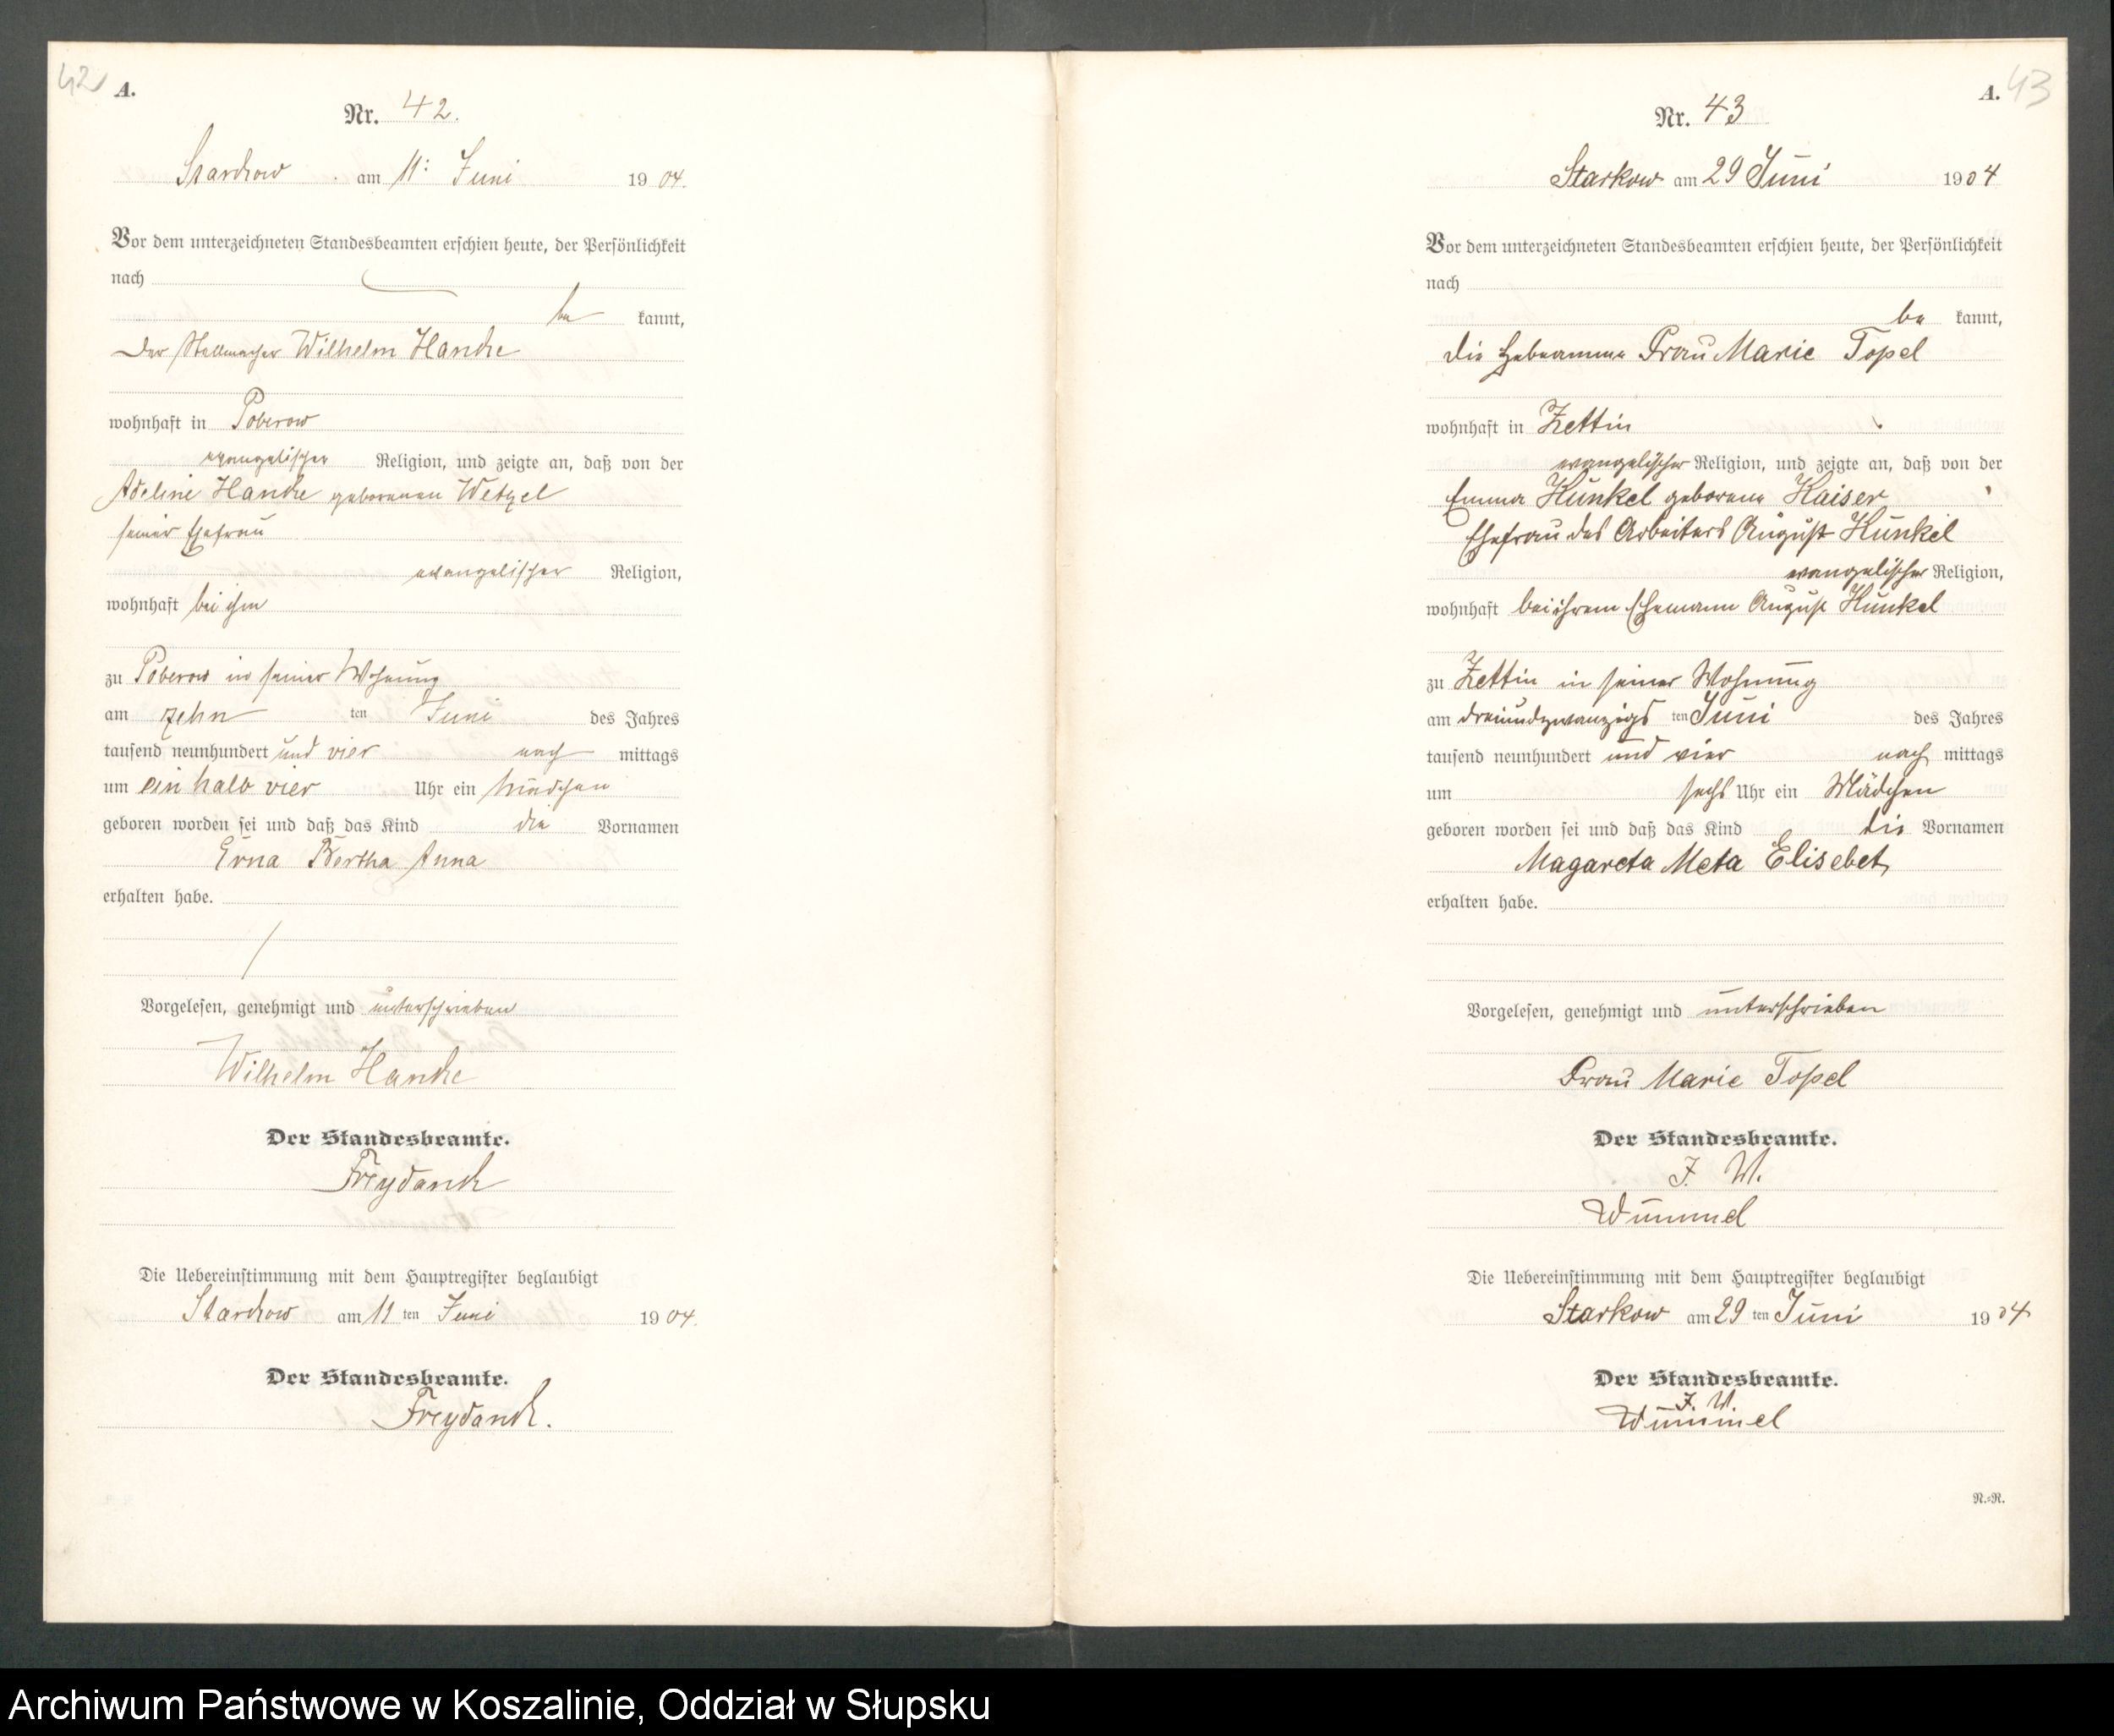 42
A.
Nr. 42.
Starckow am 11. Juni 1904.
Vor dem unterzeichneten Standesbeamten erschien heute, der Persönlichkeit
nach
be kannt,
Der Stellmacher Wilhelm Hancke
wohnhaft in Poberow
evangelischer Religion, und zeigte an, daß von der
Adeline Hancke geborenen Wetzel
seiner Ehefrau
evangelischer Religion,
wohnhaft bei ihm
zu Poberow in seiner Wohnung
am zehn ten Juni des Jahres
tausend neunhundert und vier nach mittags
um ein halb vier Uhr ein Mädchen
geboren worden sei und daß das Kind die Vornamen
Erna Bertha Anna
erhalten habe.
Vorgelesen, genehmigt und unterschrieben
Wilhelm Hancke
Der Standesbeamte.
Freydanck
Die Uebereinstimmung mit dem Hauptregister beglaubigt
Starckow am 11 ten Juni 1904.
Der Standesbeamte.
Freydanck.
A. 43
Nr. 43
Starkow am 29 Juni 1904
Vor dem unterzeichneten Standesbeamten erschien heute, der Persönlichkeit
nach
be kannt,
die Hebeamme Frau Marie Topel
wohnhaft in Zettin
evangelischer Religion, und zeigte an, daß von der
Emma Kunkel geborene Kaiser
Ehefrau des Arbeiters August Kunkel
evangelischer Religion,
wohnhaft bei ihrem Ehemann August Kunkel
zu Zettin in seiner Wohnung
am dreiundzwanzigs ten Juni des Jahres
tausend neunhundert und vier nach mittags
um sechs Uhr ein Mädchen
geboren worden sei und daß das Kind die Vornamen
Magareta Meta Elisebet
erhalten habe.
Vorgelesen, genehmigt und unterschrieben
Frau Marie Topel
Der Standesbeamte.
J. W.
Wummel
Die Uebereinstimmung mit dem Hauptregister beglaubigt
Starkow am 29 ten Juni 1904
Der Standesbeamte.
J. W.
Wummel
N.=N.
Archiwum Państwowe w Koszalinie, Oddział w Słupsku